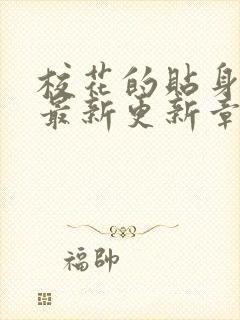 校花的貼身
最新更新章
福帥